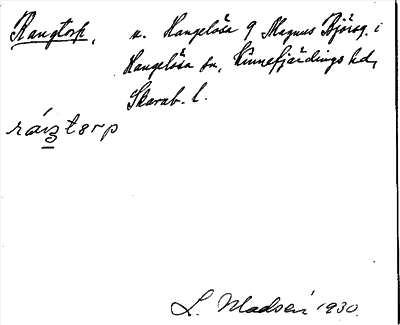 Rangtorp, n. Hangelösa 9 Magnus Björsg. i
Hangelösa sn, Kinnefjärdings hd,
Skarab. l.
ráŋtərp
L. Madsén 1930.